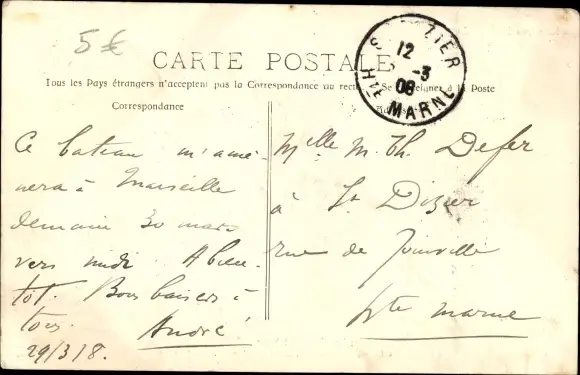 5 €
CARTE POSTALE
Tous les Pays étrangers n'acceptent pas la Correspondance au recto Se à la Poste
Correspondance
Ce bateau m'amè-
nera à Marseille
demain 30 mars
vers midi. A bien-
tôt. Bons baisers à
tous. André
29/3/8.
12
-3
08
Hte MARNE
Melle M. Th. Defer
à St Dizier
rue de Joinville
Hte Marne